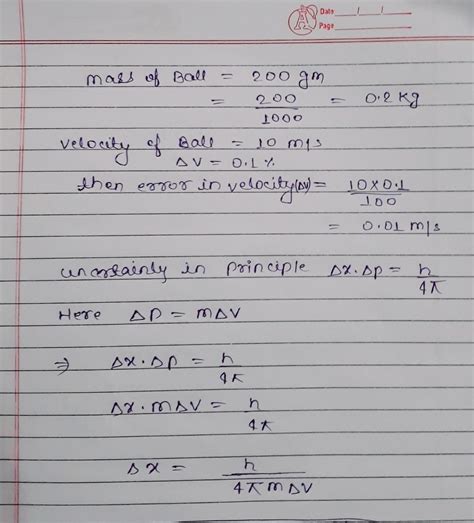 Date / /
Page
mass of Ball = 200 gm
= 200/1000 = 0.2 kg
velocity of Ball = 10 m/s
ΔV = 0.1 %
then error in velocity(ΔV) = 10×0.1/100
= 0.01 m/s
uncertainly in principle Δx.Δp = h/4π
Here Δp = mΔV
⇒ Δx.Δp = h/4π
Δx.mΔV = h/4π
Δx = h/4πmΔV